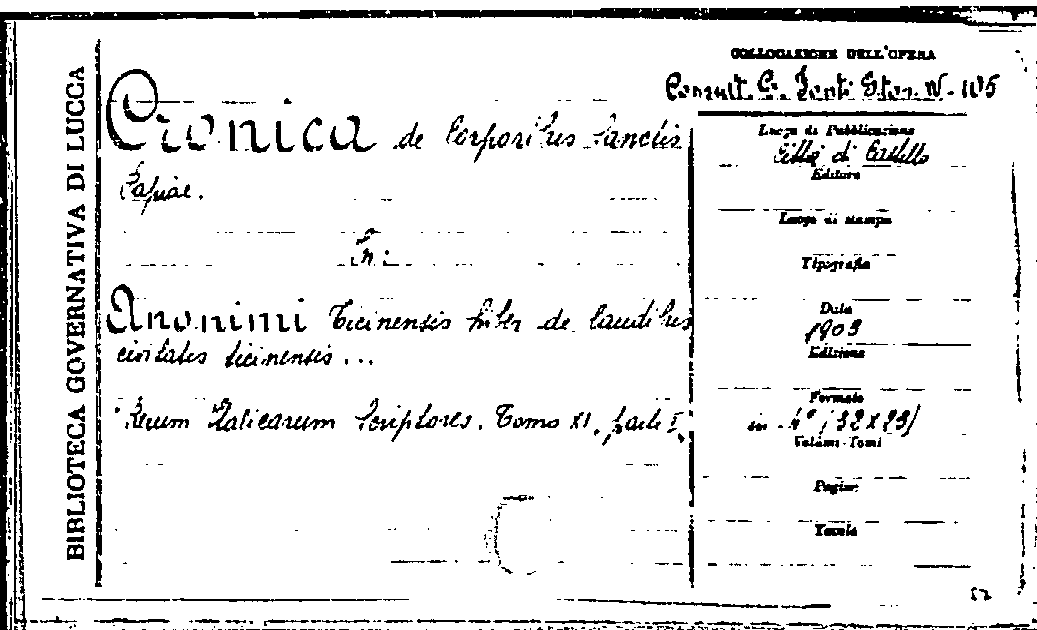 BIBLIOTECA GOVERNATIVA DI LUCCA
Cronica de Corporibus Sanctis
Papiae.
In:
Anonimi Ticinensis liber de laudibus
civitatis ticinensis...
Rerum Italicarum Scriptores. Tomo XI, parte I.
COLLOCAZIONE DELL'OPERA
Consult. C. Fonti Stor. IV - 105
Luogo di Pubblicazione
Città di Castello
Editore
Luogo di stampa
Tipografia
Data
1903
Edizione
Formato
in - 4° (32x23)
Volumi-Tomi
Pagine
Tavole
52